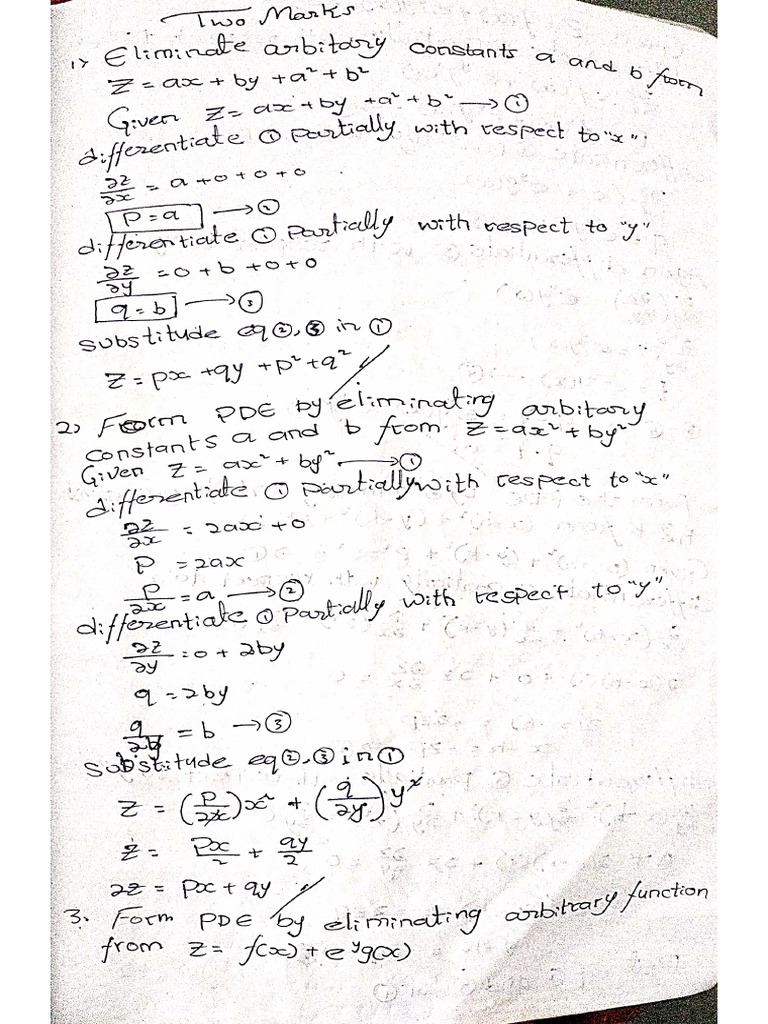 Two Marks
1) Eliminate arbitary constants a and b from
Z = ax + by + a² + b²
Given Z = ax + by + a² + b² → ①
differentiate ① partially with respect to "x"
∂z/∂x = a + 0 + 0 + 0
P = a → ②
differentiate ① partially with respect to "y"
∂z/∂y = 0 + b + 0 + 0
q = b → ③
substitute eq ②, ③ in ①
Z = px + qy + p² + q²
2) Form PDE by eliminating arbitary
constants a and b from Z = ax² + by²
Given Z = ax² + by² → ①
differentiate ① partially with respect to "x"
∂z/∂x = 2ax + 0
P = 2ax
P/2x = a → ②
differentiate ① partially with respect to "y"
∂z/∂y = 0 + 2by
q = 2by
q/2y = b → ③
Substitute eq ②, ③ in ①
Z = (P/2x)x² + (q/2y)y²
Z = Px/2 + qy/2
2z = Px + qy
3. Form PDE by eliminating arbitrary function
from Z = f(x) + e^y g(x)